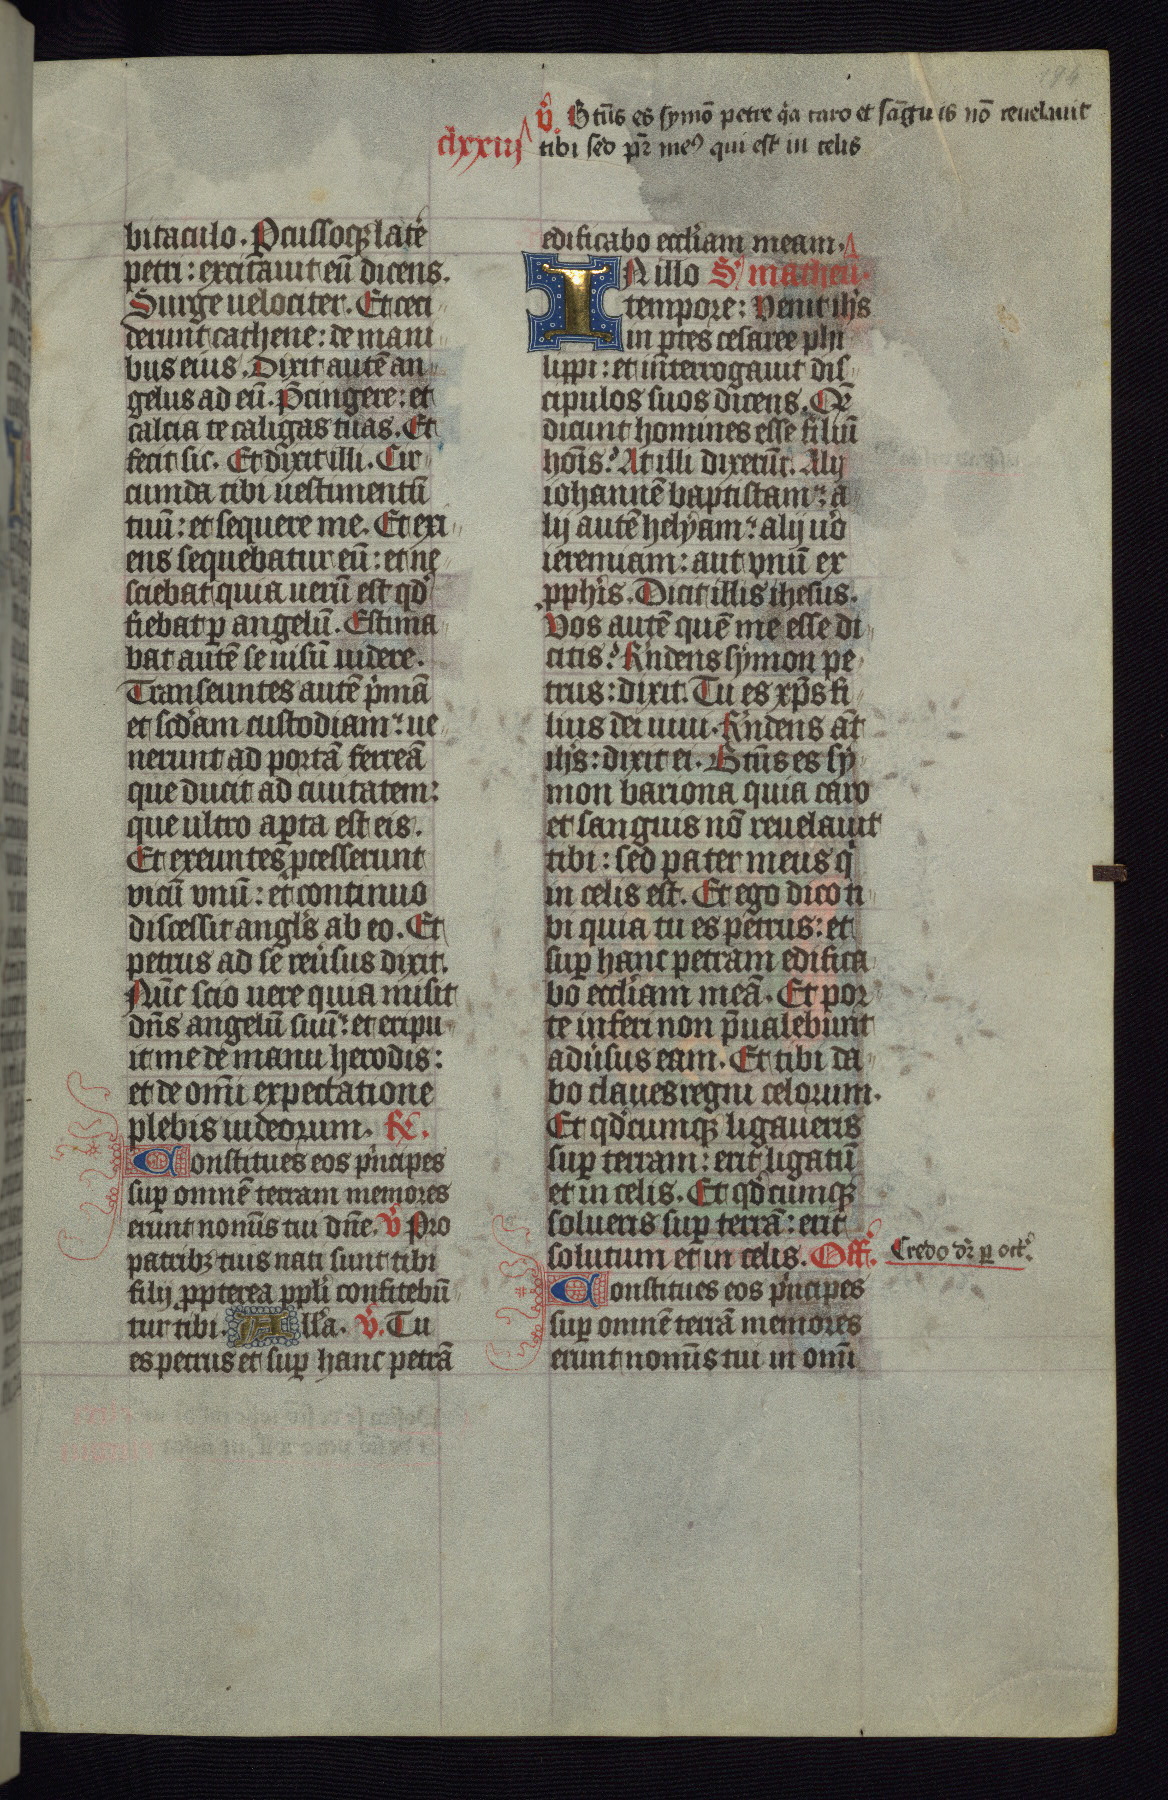 194
v̄. Bt̄us es symō petre q̇a caro et sāguis nō reuelauit
clxxiij tibi sed pr̄ meꝰ qui est in celis
bitaculo. Pcussoqꝫ latē
petri: excitauit eū dicens.
Surge uelociter. Et ceci
derunt cathene: de mani
bus eius. Dixit autē an
gelus ad eū. P̄cingere: et
calcia te caligas tuas. Et
fecit sic. Et dixit illi. Cir
cumda tibi uestimentū
tuū: et sequere me. Et exi
ens sequebatur eū: et ne
sciebat quia uerū est qd̄
fiebat ꝑ angelū. Estima
bat autē se uisū uidere.
Transeuntes autē p̄mā
et scd̄am custodiam: ue
nerunt ad portā ferreā
que ducit ad ciuitatem:
que ultro aꝑta est eis.
Et exeuntes ꝓcesserunt
vicū vnū: et continuo
discessit angls̄ ab eo. Et
petrus ad se reuīsus dixit.
Nūc scio uere quia misit
dn̄s angelū suū: et eripu
it me de manu herodis:
et de om̄i expectatione
plebis iudeorum. R̄.
Constitues eos pn̄cipes
suꝑ omnē terram memores
erunt nomīs tui dn̄e. v̄ Pro
patribꝫ tuis nati sunt tibi
filij ꝓpterea ppl̄i confitebū
tur tibi. All̄a. v̄. Tu
es petrus et suꝑ hanc petrā
edificabo eccl̄iam meam.
IN illo S̄ matheū.
tempore: Venit ih̄s
in ꝑtes cesaree phi
lippi: et int̄errogauit dis
cipulos suos dicens. Qē
dicunt homines esse filiū
hoīs? At illi dixerūt. Alij
iohannē baptistam: a
lij autē helyam: alij uō
ieremiam: aut vnū ex
ꝓphīs. Dicit illis ihesus.
Vos autē quē me esse di
citis? R̄ndens symon pe
trus: dixit. Tu es xp̄s fi
lius dei uiui. R̄ndens at̄
ih̄s: dixit ei. Bt̄us es sy
mon bariona quia caro
et sanguis nō reuelauit
tibi: sed pater meus q̇
in celis est. Et ego dico ti
bi quia tu es petrus: et
suꝑ hanc petram edifica
bo eccl̄iam meā. Et por
te inferi non p̄ualebunt
aduīsus eam. Et tibi da
bo claues regni celorum.
Et qd̄cumqꝫ ligaueris
suꝑ terram: erit ligatū
et in celis. Et qd̄cumqꝫ
solueris suꝑ terrā: erit
solutum et in celis. Off̄. Credo dr̄ ꝑ oct̄.
Constitues eos pn̄cipes
suꝑ omnē terrā memores
erunt nomīs tui in om̄i